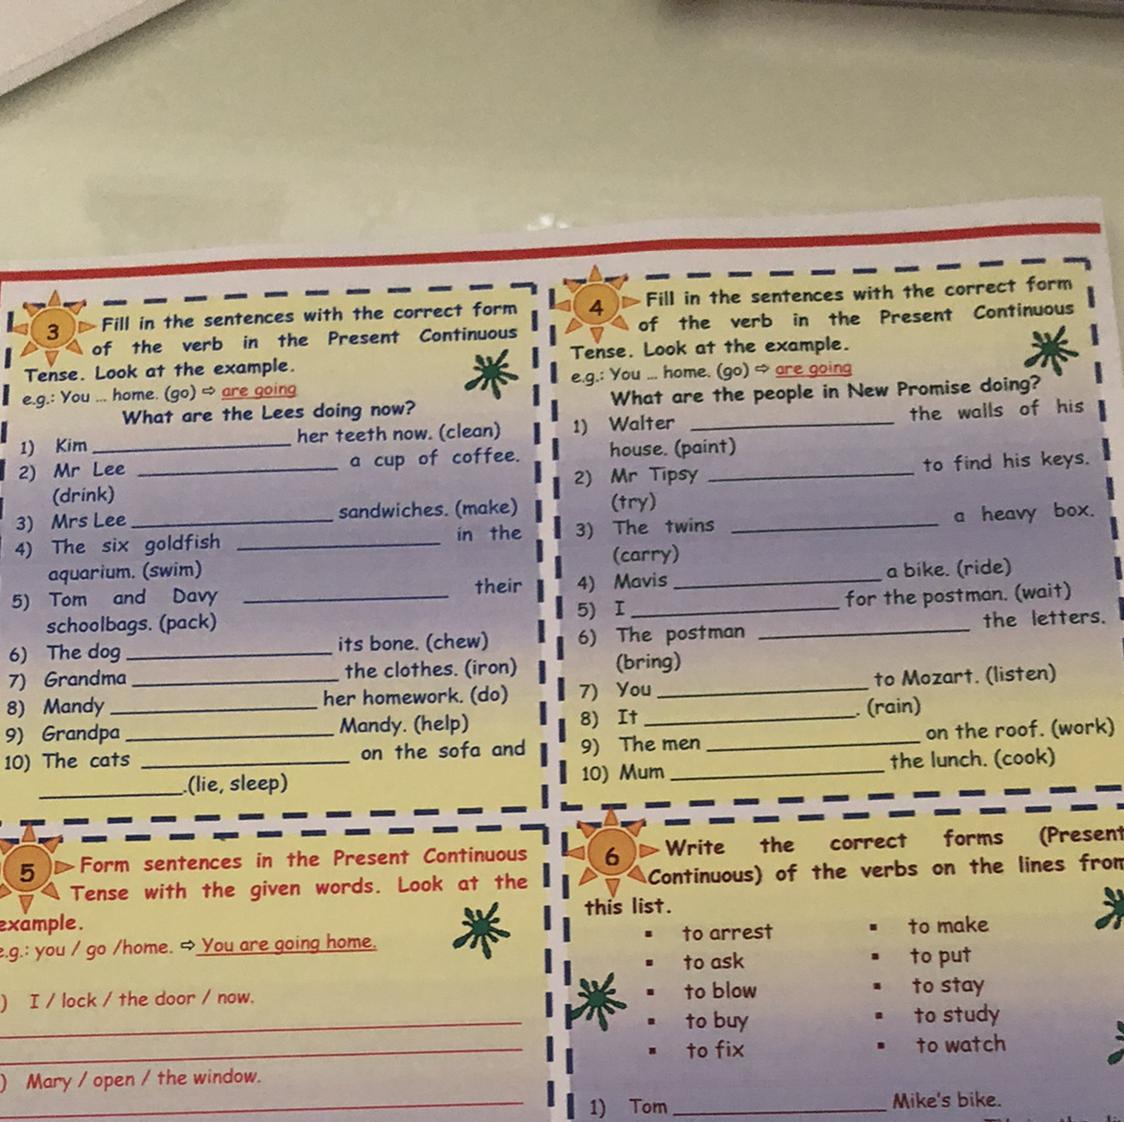 3
Fill in the sentences with the correct form
of the verb in the Present Continuous
Tense. Look at the example.
e.g.: You ... home. (go) ⇨ are going
What are the Lees doing now?
1) Kim ____________ her teeth now. (clean)
2) Mr Lee ____________ a cup of coffee.
(drink)
3) Mrs Lee ____________ sandwiches. (make)
4) The six goldfish ____________ in the
aquarium. (swim)
5) Tom and Davy ____________ their
schoolbags. (pack)
6) The dog ____________ its bone. (chew)
7) Grandma ____________ the clothes. (iron)
8) Mandy ____________ her homework. (do)
9) Grandpa ____________ Mandy. (help)
10) The cats ____________ on the sofa and
____________.(lie, sleep)
4
Fill in the sentences with the correct form
of the verb in the Present Continuous
Tense. Look at the example.
e.g.: You ... home. (go) ⇨ are going
What are the people in New Promise doing?
1) Walter ____________ the walls of his
house. (paint)
2) Mr Tipsy ____________ to find his keys.
(try)
3) The twins ____________ a heavy box.
(carry)
4) Mavis ____________ a bike. (ride)
5) I ____________ for the postman. (wait)
6) The postman ____________ the letters.
(bring)
7) You ____________ to Mozart. (listen)
8) It ____________. (rain)
9) The men ____________ on the roof. (work)
10) Mum ____________ the lunch. (cook)
5
Form sentences in the Present Continuous
Tense with the given words. Look at the
example.
e.g.: you / go /home. ⇨ You are going home.
) I / lock / the door / now.
) Mary / open / the window.
6
Write the correct forms (Present
Continuous) of the verbs on the lines from
this list.
▪ to arrest
▪ to ask
▪ to blow
▪ to buy
▪ to fix
▪ to make
▪ to put
▪ to stay
▪ to study
▪ to watch
1) Tom ____________ Mike's bike.